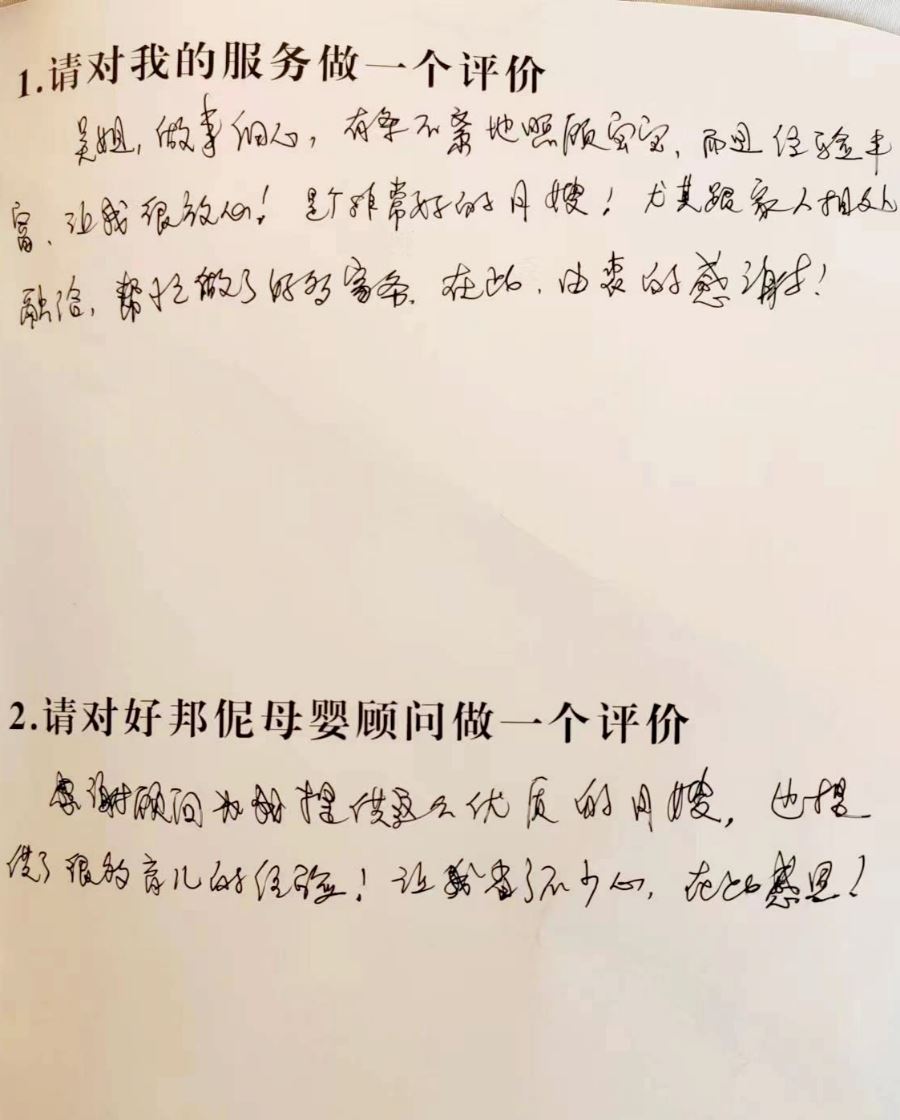 1.请对我的服务做一个评价
吴姐,做事细心,有条不紊地照顾宝宝,而且经验丰
富、让我很放心!是个非常好的月嫂!尤其跟家人相处
融洽,帮忙做了好多家务.在此.由衷的感谢!
2.请对好邦伲母婴顾问做一个评价
感谢顾问为我提供这么优质的月嫂,也提
供了很多育儿的经验!让我省了不少心,在此感恩!